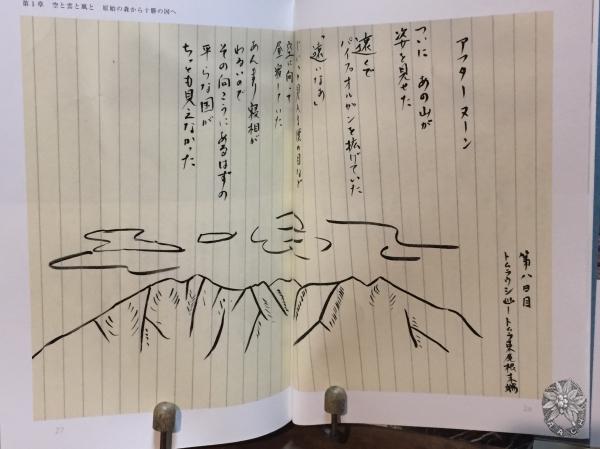 第1章 空と雲と風と 原始の森から十勝の国へ
第八日目
トムラウシ山ートムラ東尾根末端
アフターヌーン
ついに あの山が
姿を見せた
遠くで
パイプオルガンを拡げていた
「遠いなあ」
見入る僕の目など
空に向って
昼寝していた
あんまり寝相が
わるいので
その向こうにあるはずの
平らな国が
ちっとも見えなかった
26
27